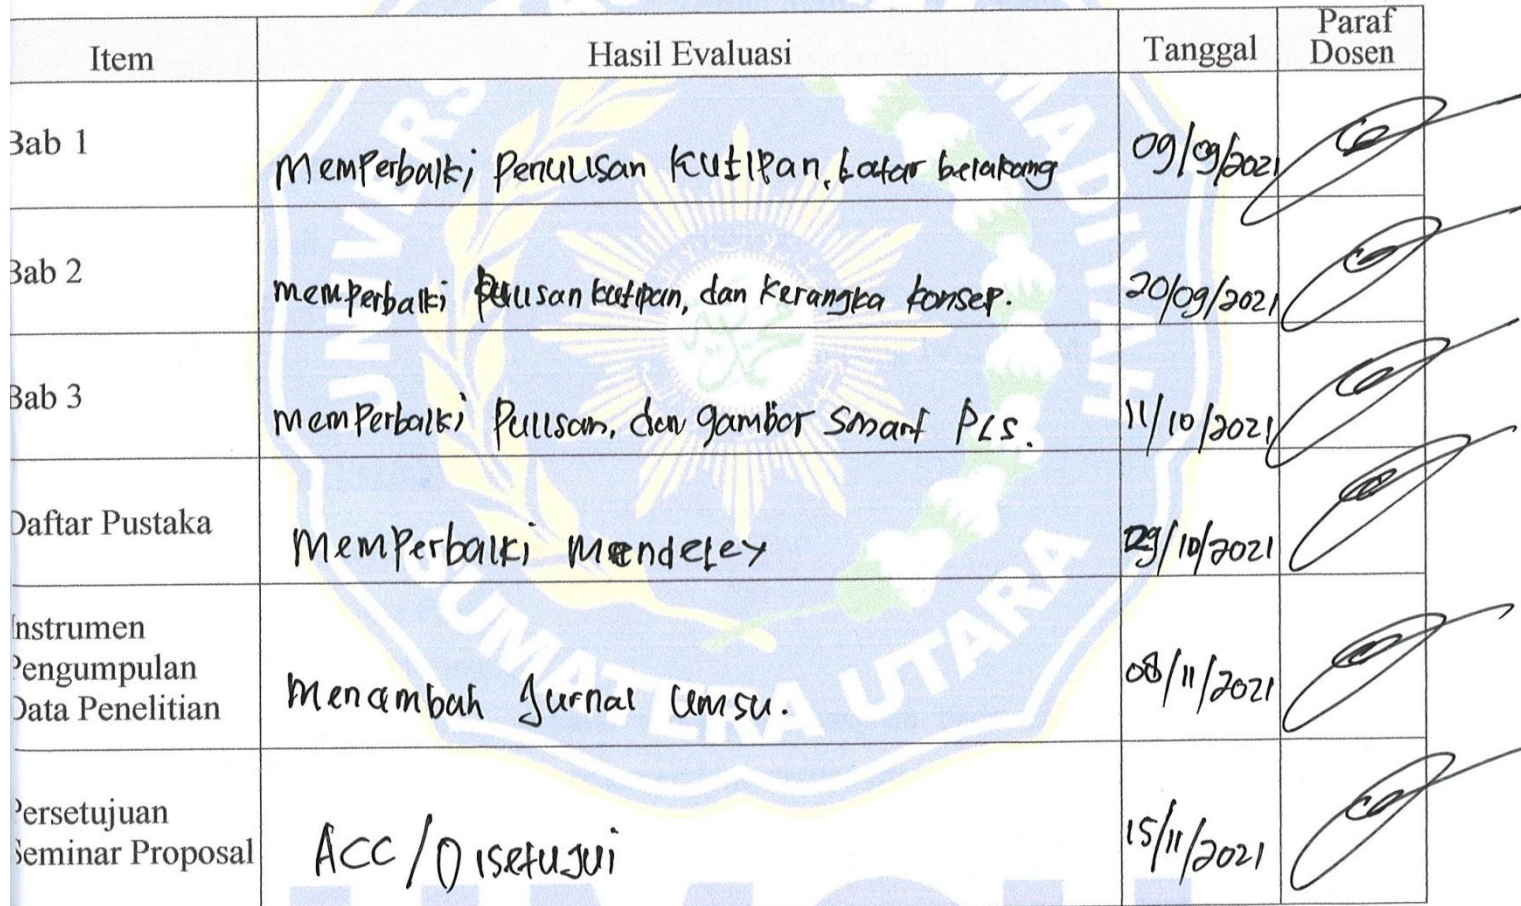 Item Hasil Evaluasi Tanggal Paraf Dosen
Bab 1 Memperbaiki Penulisan Kutipan, Latar belakang 09/09/2021
Bab 2 memperbaiki kutipan, dan Kerangka konsep. 20/09/2021
Bab 3 memperbaiki dan gambar Smart PLS. 11/10/2021
Daftar Pustaka Memperbaiki Mendeley 29/10/2021
Instrumen
Pengumpulan
Data Penelitian Menambah Jurnal Umsu. 08/11/2021
Persetujuan
Seminar Proposal ACC/Disetujui 15/11/2021
UNIVERSITAS MUHAMMADIYAH
SUMATERA UTARA
UMSU